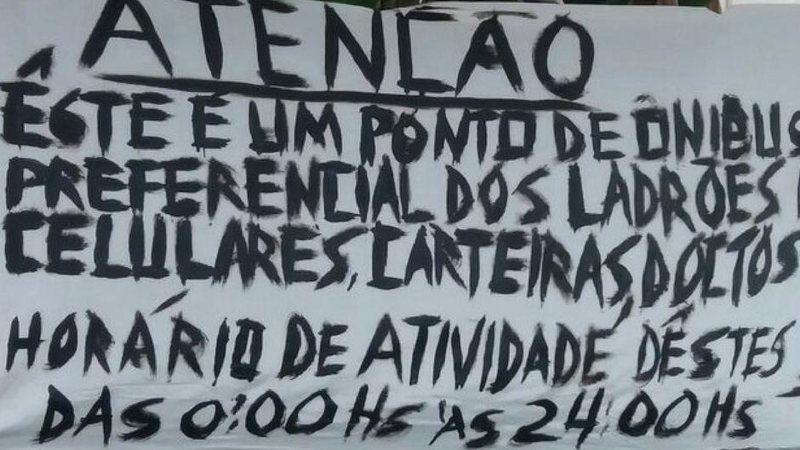 ATENÇÃO
ÊSTE É UM PONTO DE ÔNIBUS
PREFERENCIAL DOS LADRÕES
CELULARES, CARTEIRAS, DOCTOS
HORÁRIO DE ATIVIDADE DÊSTES
DAS 0:00 HS ÀS 24:00 HS